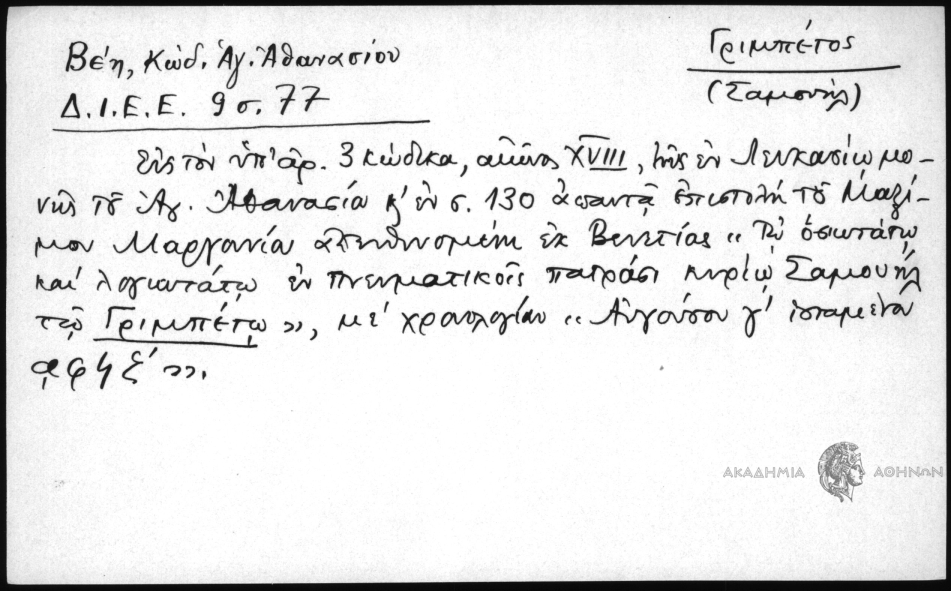 Βέη, Κώδ. Ἁγ. Ἀθανασίου
Δ.Ι.Ε.Ε. 9 σ. 77
Γριμπέτος
(Σαμουήλ)
Εἰς τὸν ὑπ' ἀρ. 3 κώδικα, αἰῶνος XVIII, τῆς ἐν Λευκασίῳ μο-
νῆς τοῦ Ἁγ. Ἀθανασίου ἐν σ. 130 ἀπαντᾷ ἐπιστολὴ τοῦ Μαξί-
μου Μαργουνίου ἀπευθυνομένη ἐκ Βενετίας «Τῷ ὁσιωτάτῳ
καὶ λογιωτάτῳ ἐν πνευματικοῖς πατράσι κυρίῳ Σαμουήλ
τῷ Γριμπέτῳ», μὲ χρονολογίαν «Αὐγούστου γ' ἱσταμένου
».
ΑΚΑΔΗΜΙΑ ΑΘΗΝΩΝ